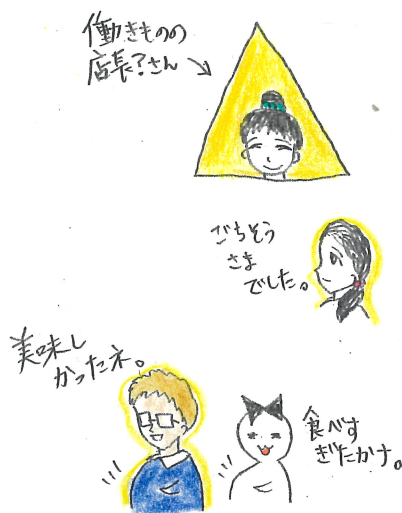 働きものの
店長？さん
ごちそう
さま
でした。
美味し
かったネ。
食べす
ぎたかナ。